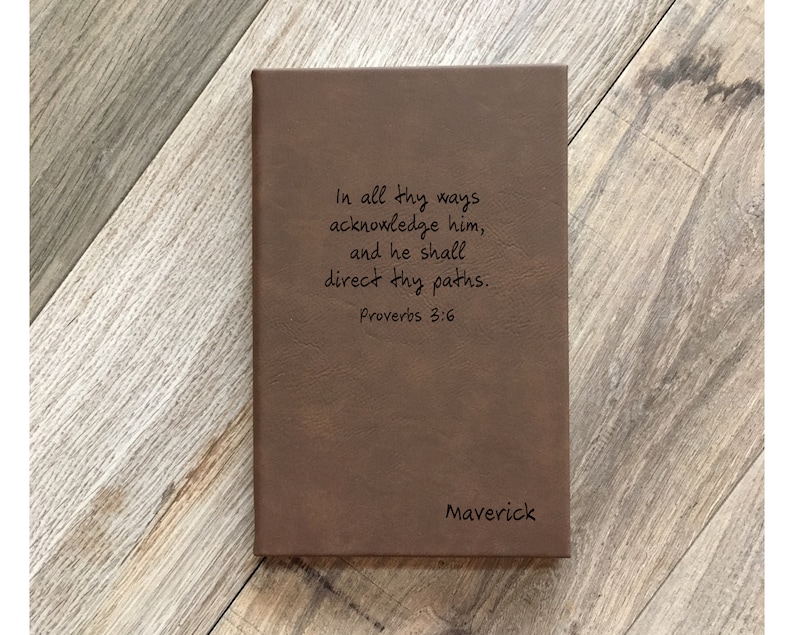 In all thy ways
acknowledge him,
and he shall
direct thy paths.
Proverbs 3:6
Maverick